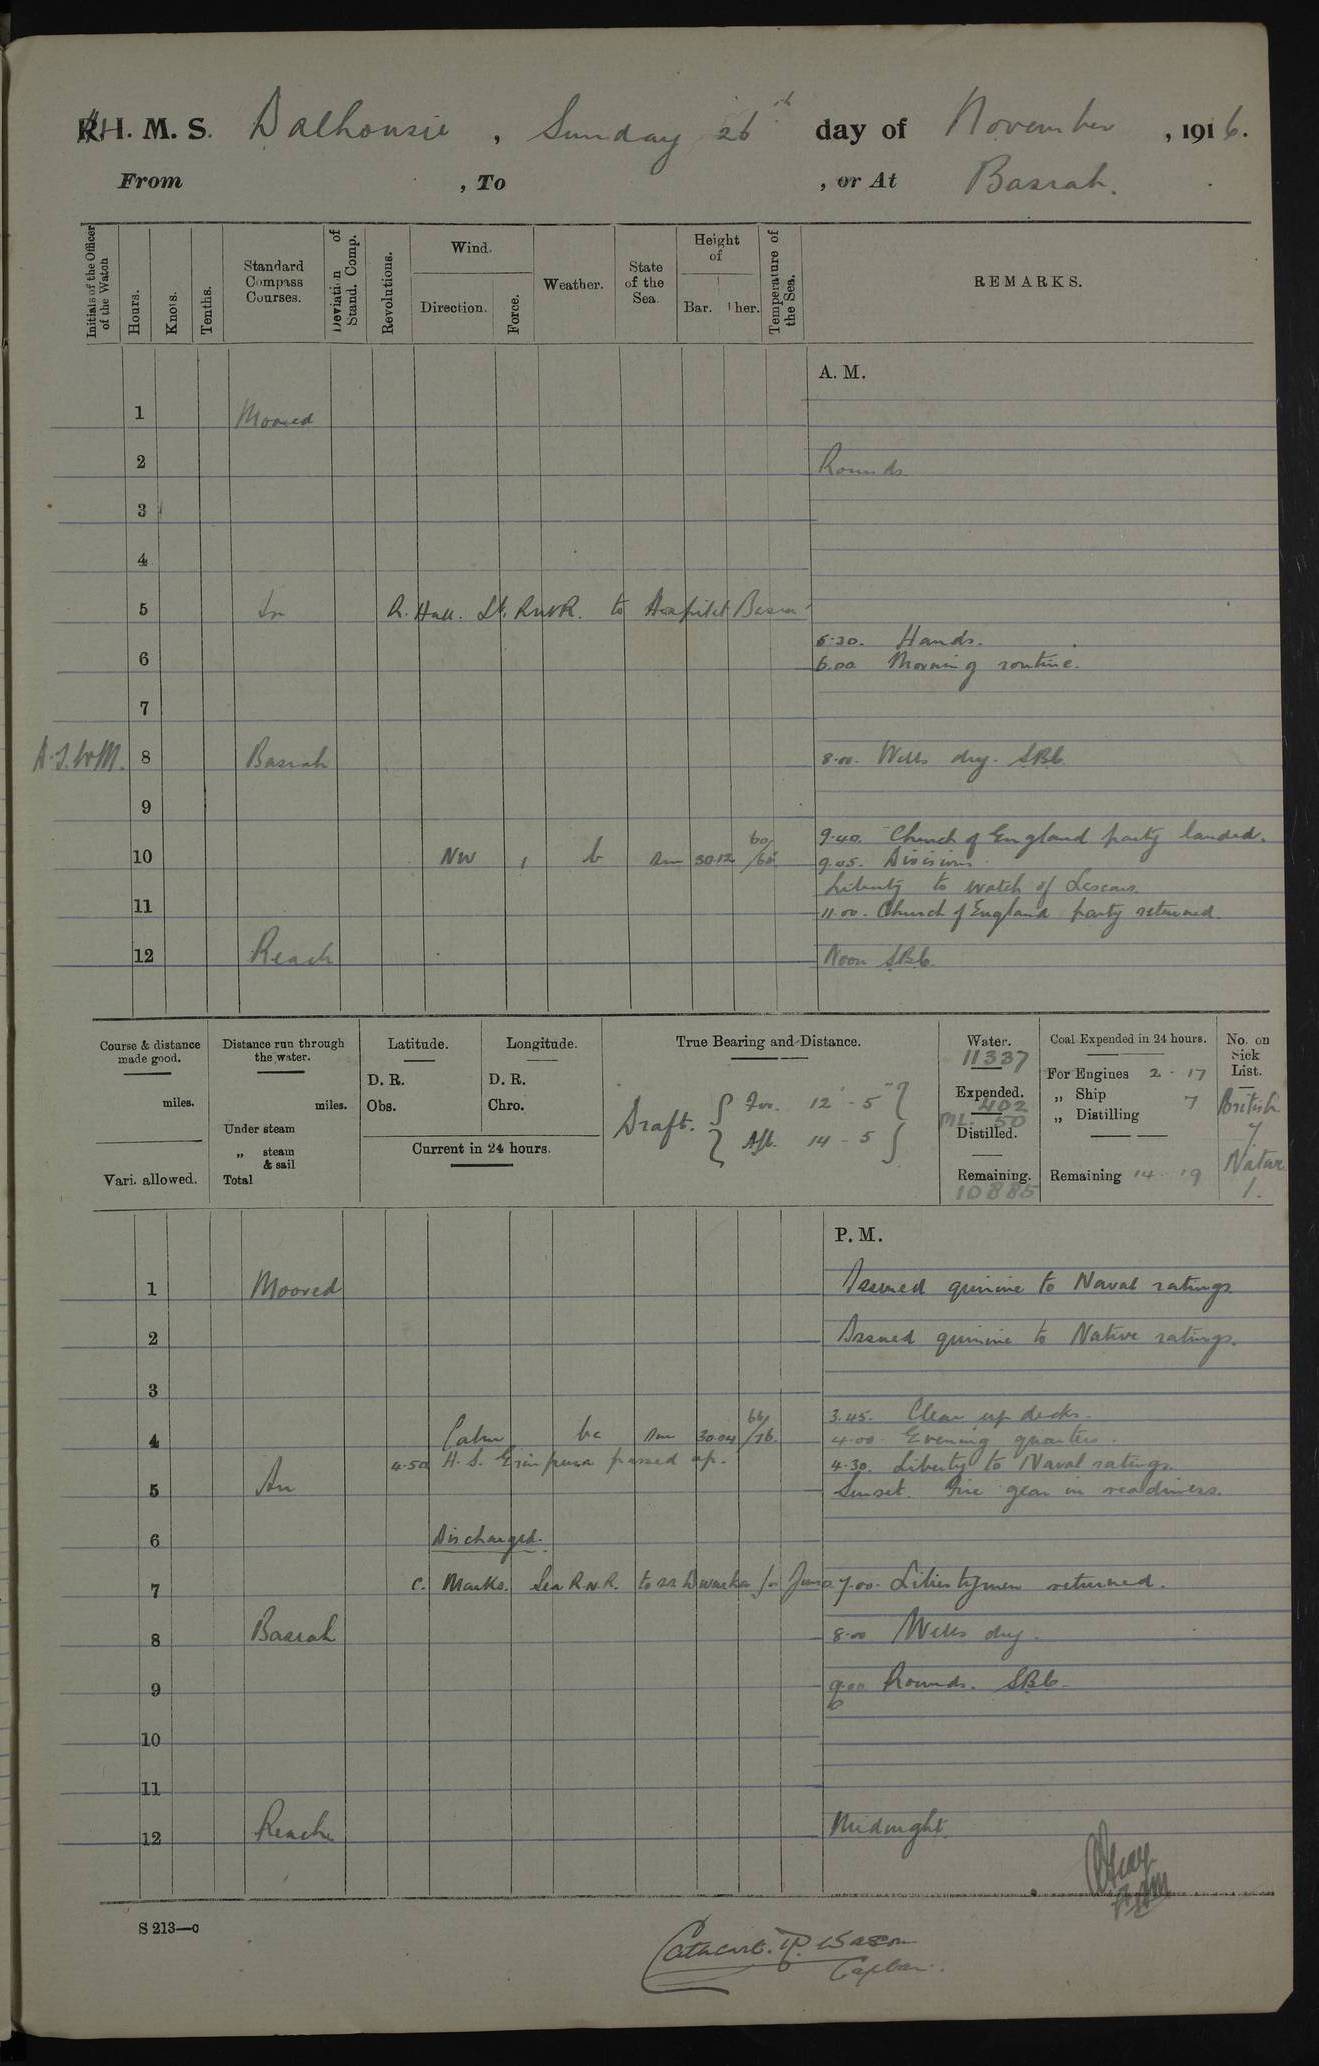 H. M. S. Dalhousie , Sunday 26th day of November , 1916.
From , To , or At Basrah.
Initials of the Officer of the Watch
Hours.
Knots.
Tenths.
Standard Compass Courses.
Deviation of Stand. Comp.
Revolutions.
Wind.
Direction.
Force.
Weather.
State of the Sea.
Height of
Bar. Ther.
Temperature of the Sea.
REMARKS.
A. M.
1 Moored
2 Rounds
3
4
5 In R. Hall. Lt. RNVR. to Hospital Basra
5.30. Hands.
6 6.00 Morning routine.
7
8 Basrah 8.00. Wells dry. SBC
9
9.40. Church of England party landed.
10 NW 1 b Sm 30.12 60/65 9.05. Divisions
Liberty to watch of Lascars.
11 11.00. Church of England party returned.
12 Reach Noon SBC.
Course & distance made good.
miles.
Vari. allowed.
Distance run through the water.
miles.
Under steam
„ steam & sail
Total
Latitude.
D. R.
Obs.
Longitude.
D. R.
Chro.
Current in 24 hours.
True Bearing and Distance.
Draft. { For. 12' - 5" }
{ Aft. 14 - 5 }
Water.
11337
Expended.
402
ML. 50
Distilled.
Remaining.
10885
Coal Expended in 24 hours.
For Engines 2 - 17
„ Ship 7
„ Distilling
Remaining 14 - 19
No. on Sick List.
British
7
Native
1.
P. M.
1 Moored Issued quinine to Naval ratings.
2 Issued quinine to Native ratings.
3
3.45. Clear up decks.
4 Calm bc Sm 30.04 66/76. 4.00 Evening quarters.
4.50 H. S. Erinpura passed up. 4.30. Liberty to Naval ratings.
5 In Sunset. Fire gear in readiness.
6 Discharged.
7 C. Marks. Sea R.N.R. to ss Dwarka for 7.00. Libertymen returned.
8 Basrah 8.00 Wells dry.
9 9.00 Rounds. SBC.
10
11
12 Reach Midnight.
S 213—c
Cathcart. R. Wason
Captain.